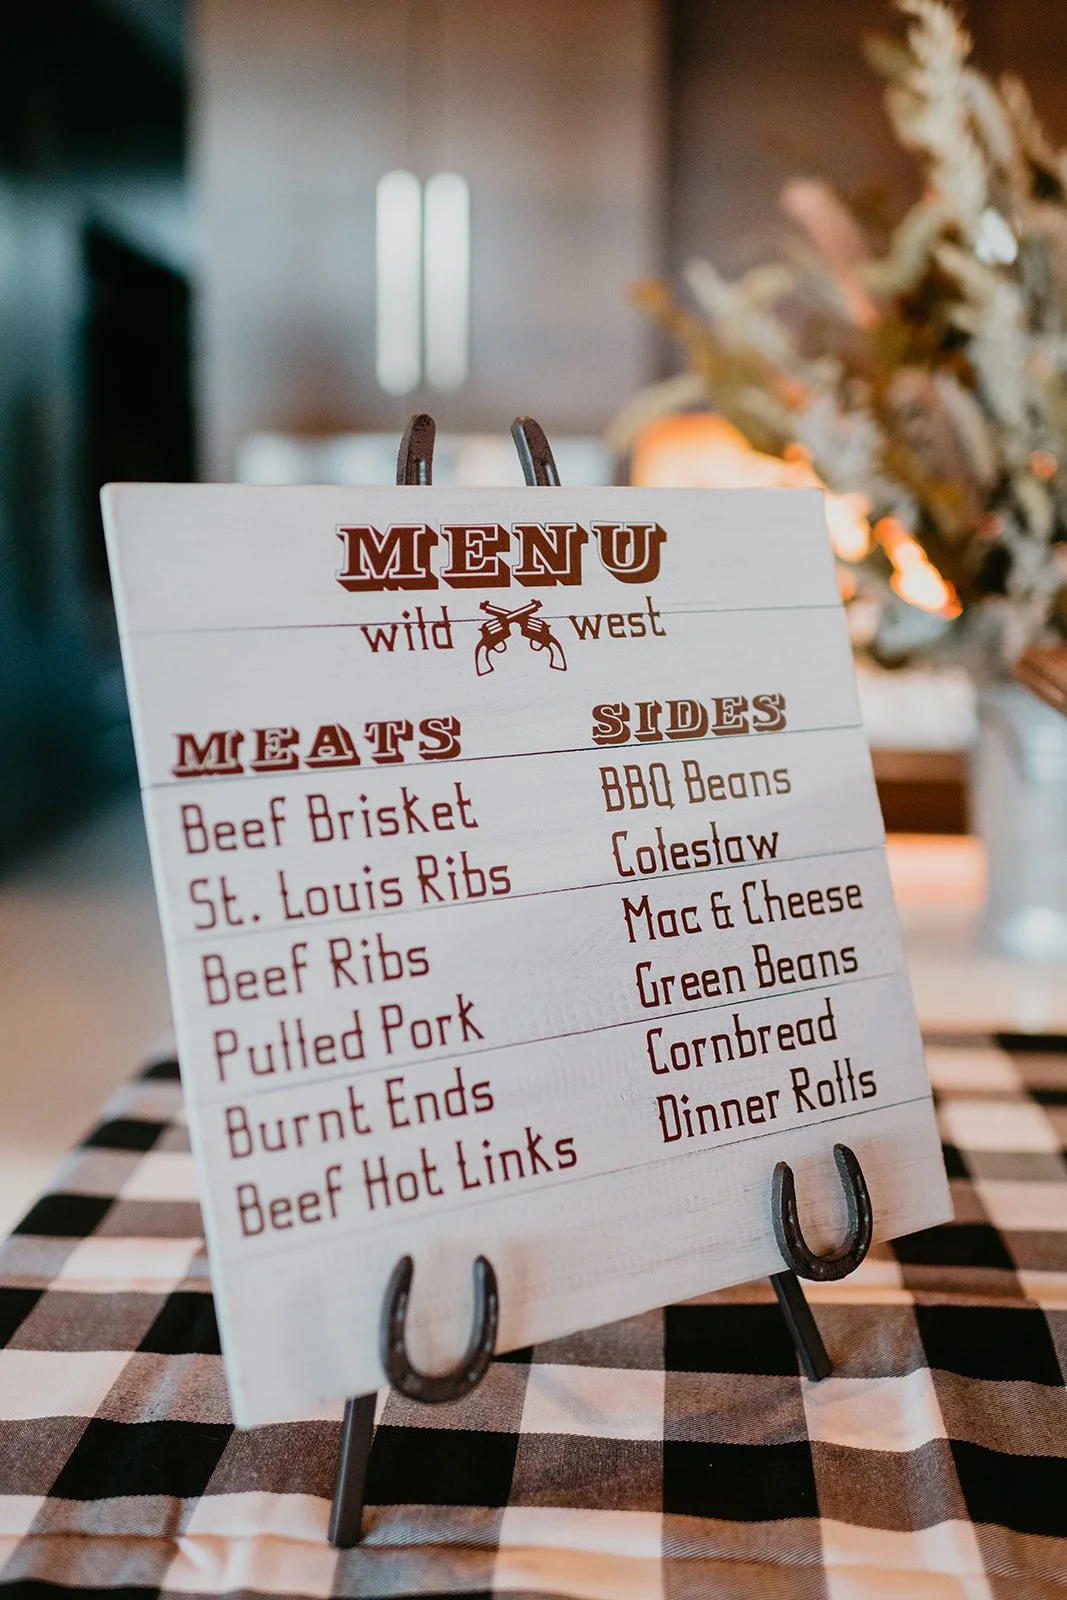 MENU
wild west
MEATS
Beef Brisket
St. Louis Ribs
Beef Ribs
Pulled Pork
Burnt Ends
Beef Hot Links
SIDES
BBQ Beans
Coleslaw
Mac & Cheese
Green Beans
Cornbread
Dinner Rolls